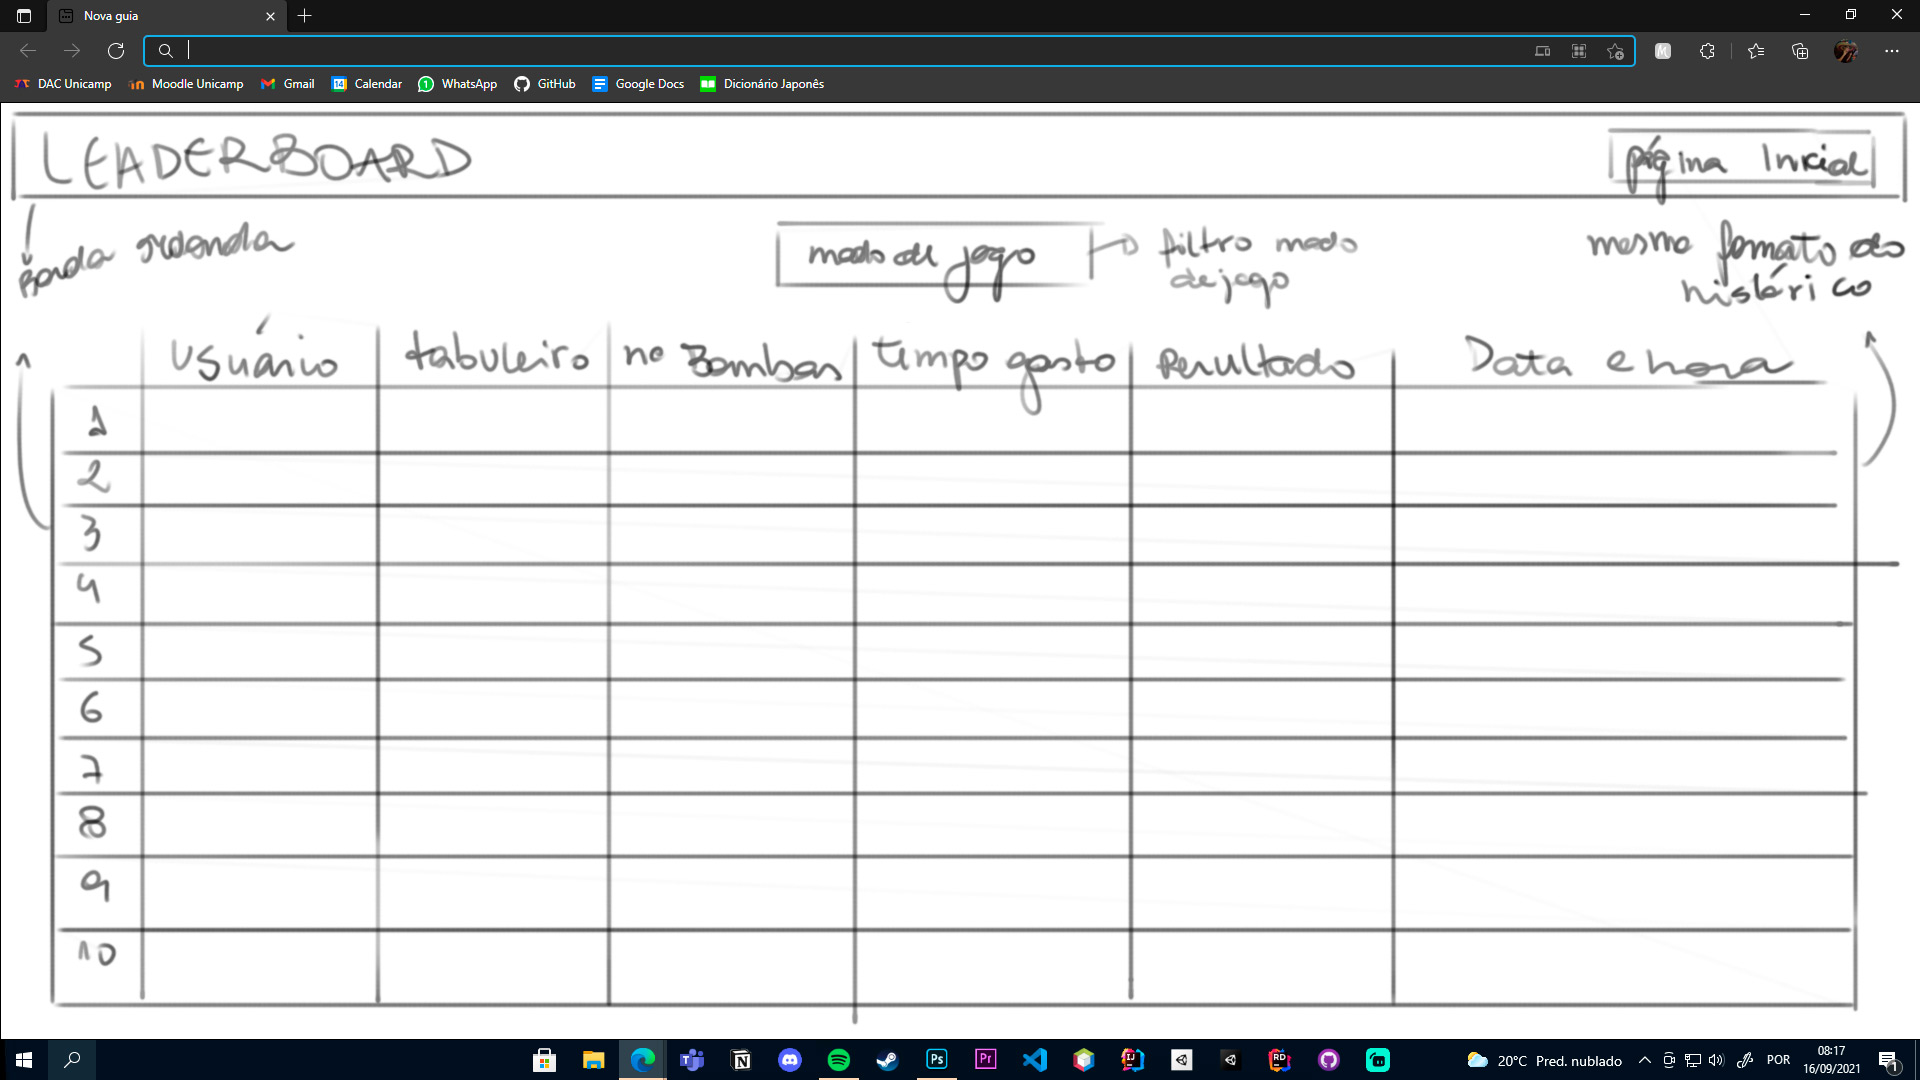 Nova guia
DAC Unicamp Moodle Unicamp Gmail Calendar WhatsApp GitHub Google Docs Dicionário Japonês
LEADERBOARD página Inicial
Borda redonda
modo de jogo
filtro modo
de jogo
mesmo formato do
histórico
usuário tabuleiro no Bombas tempo gasto Resultado Data e hora
1
2
3
4
5
6
7
8
9
10
20°C Pred. nublado POR 08:17
16/09/2021